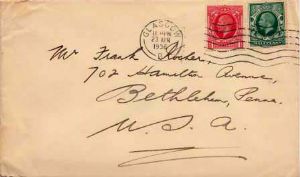 GLASGOW
1936
Mr Frank Kocher,
702 Hamilton Avenue,
Bethlehem, Penna.
U. S. A.